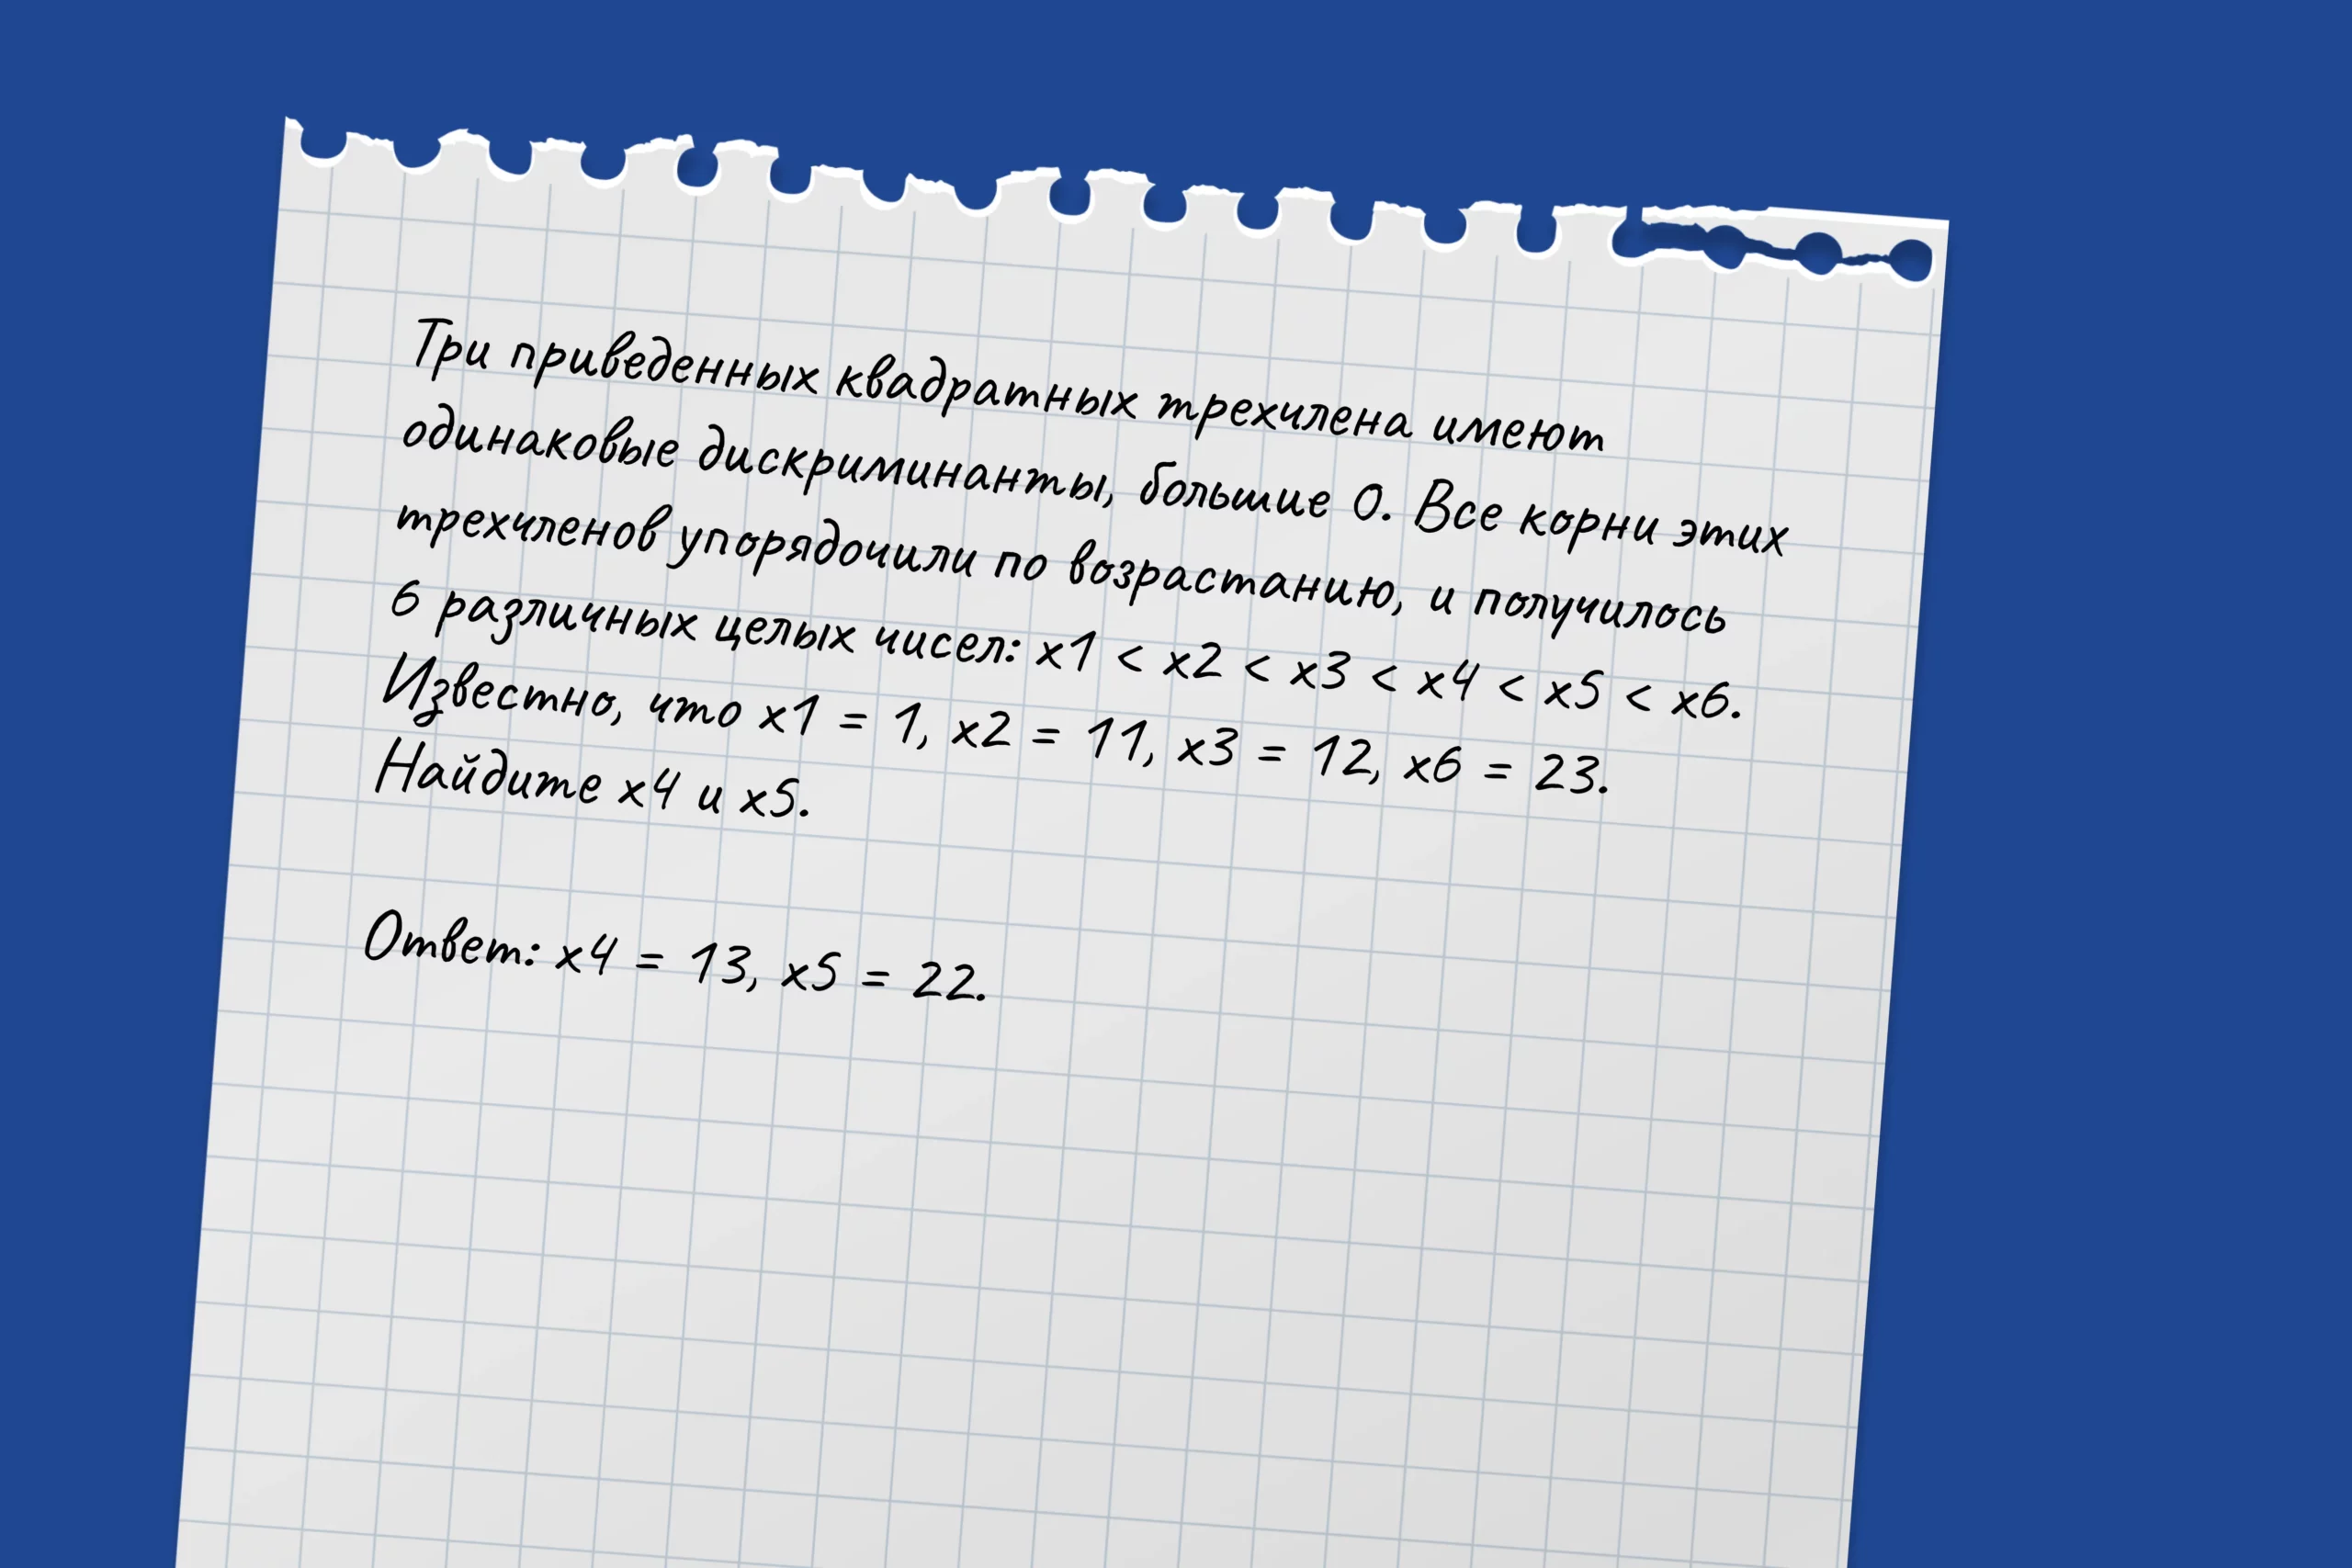 Три приведенных квадратных трехчлена имеют
одинаковые дискриминанты, большие 0. Все корни этих
трехчленов упорядочили по возрастанию, и получилось
6 различных целых чисел: x1 < x2 < x3 < x4 < x5 < x6.
Известно, что x1 = 1, x2 = 11, x3 = 12, x6 = 23.
Найдите x4 и x5.
Ответ: x4 = 13, x5 = 22.